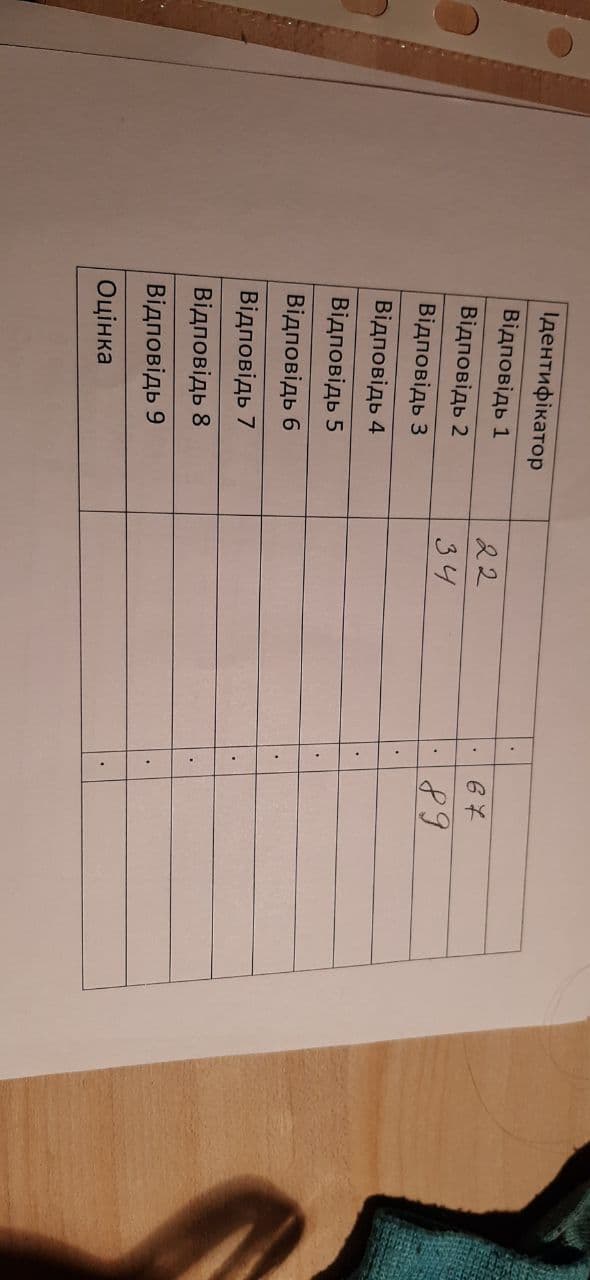 Ідентифікатор .
Відповідь 1 22 . 67
Відповідь 2 34 . 89
Відповідь 3 .
Відповідь 4 .
Відповідь 5 .
Відповідь 6 .
Відповідь 7 .
Відповідь 8 .
Відповідь 9 .
Оцінка .